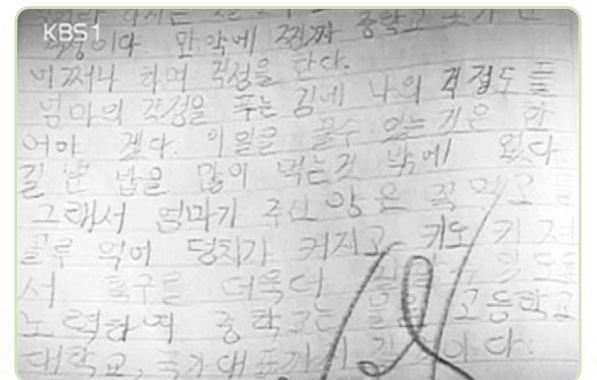 KBS1
걱정이다 만약에 찔까 중학교
어쩌나 하며 걱정을 한다.
엄마의 걱정을 푸는 김에 나의 걱정도 풀
어야 겠다. 이일을 풀수 있는 기은 한
길 밥을 많이 먹는것 밖에 없다.
그래서 엄마가 주신 양은 꼭 먹고
골루 익어 덩치가 커지고 키도 커저
서 축구를 더욱더
노력하여 중학교는 고등학교
대학교, 국가대표까지 이다.